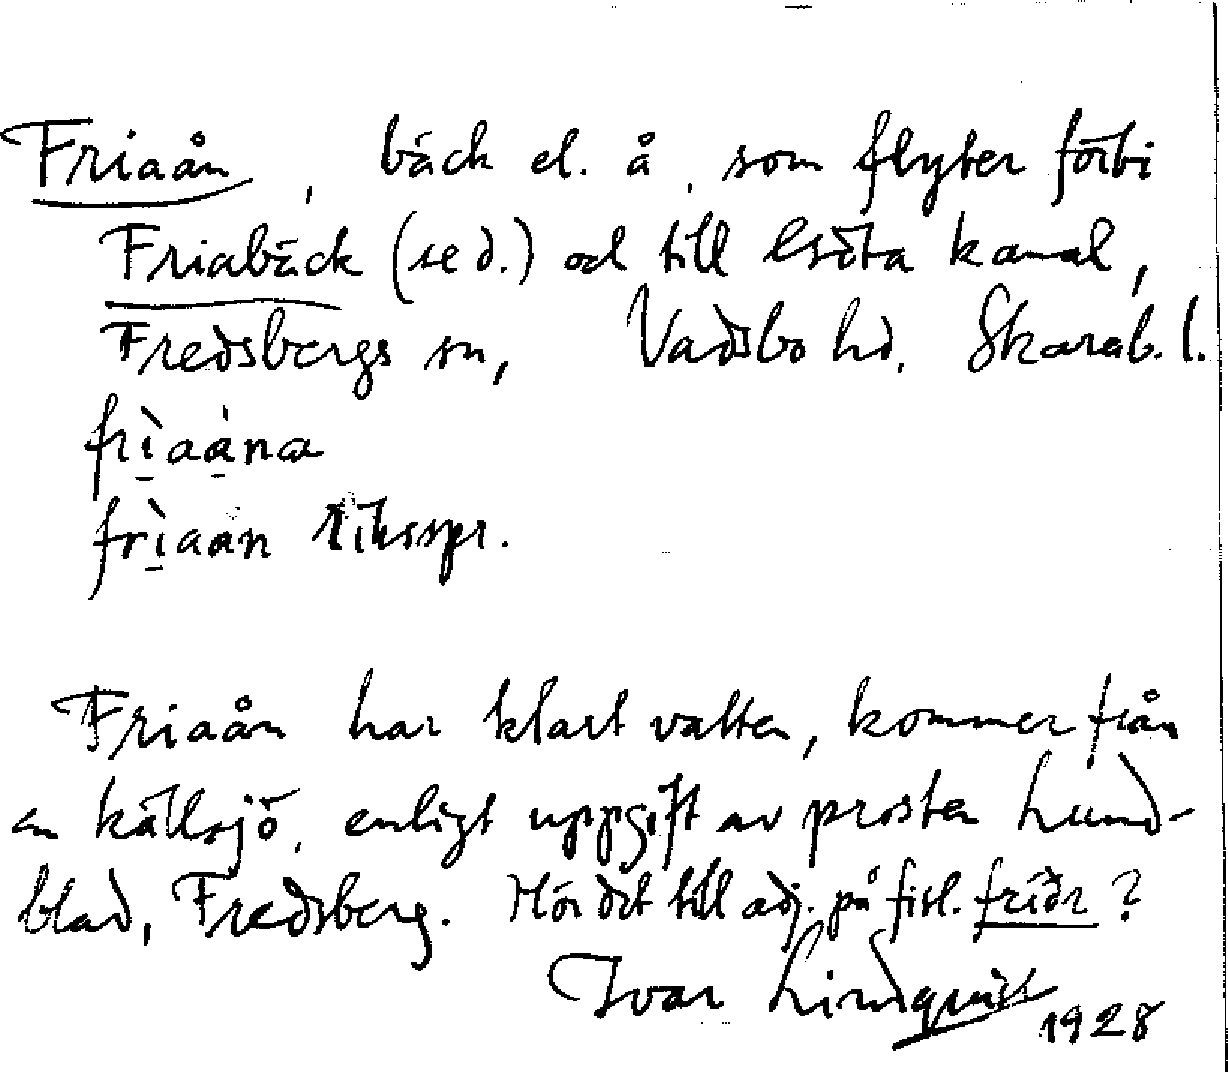 Friaån, bäck el. å, som flyter förbi
Friabäck (se d.) och till Göta kanal,
Fredsbergs sn, Vadsbo hd. Skarab. l.
frìaȧna
frìaån riksspr.
Friaån har klart vatten, kommer från
en källsjö, enligt uppgift av prosten Lund-
blad, Fredsberg. Hör det till adj. på fisl. fríðr?
Ivar Lindquist
1928